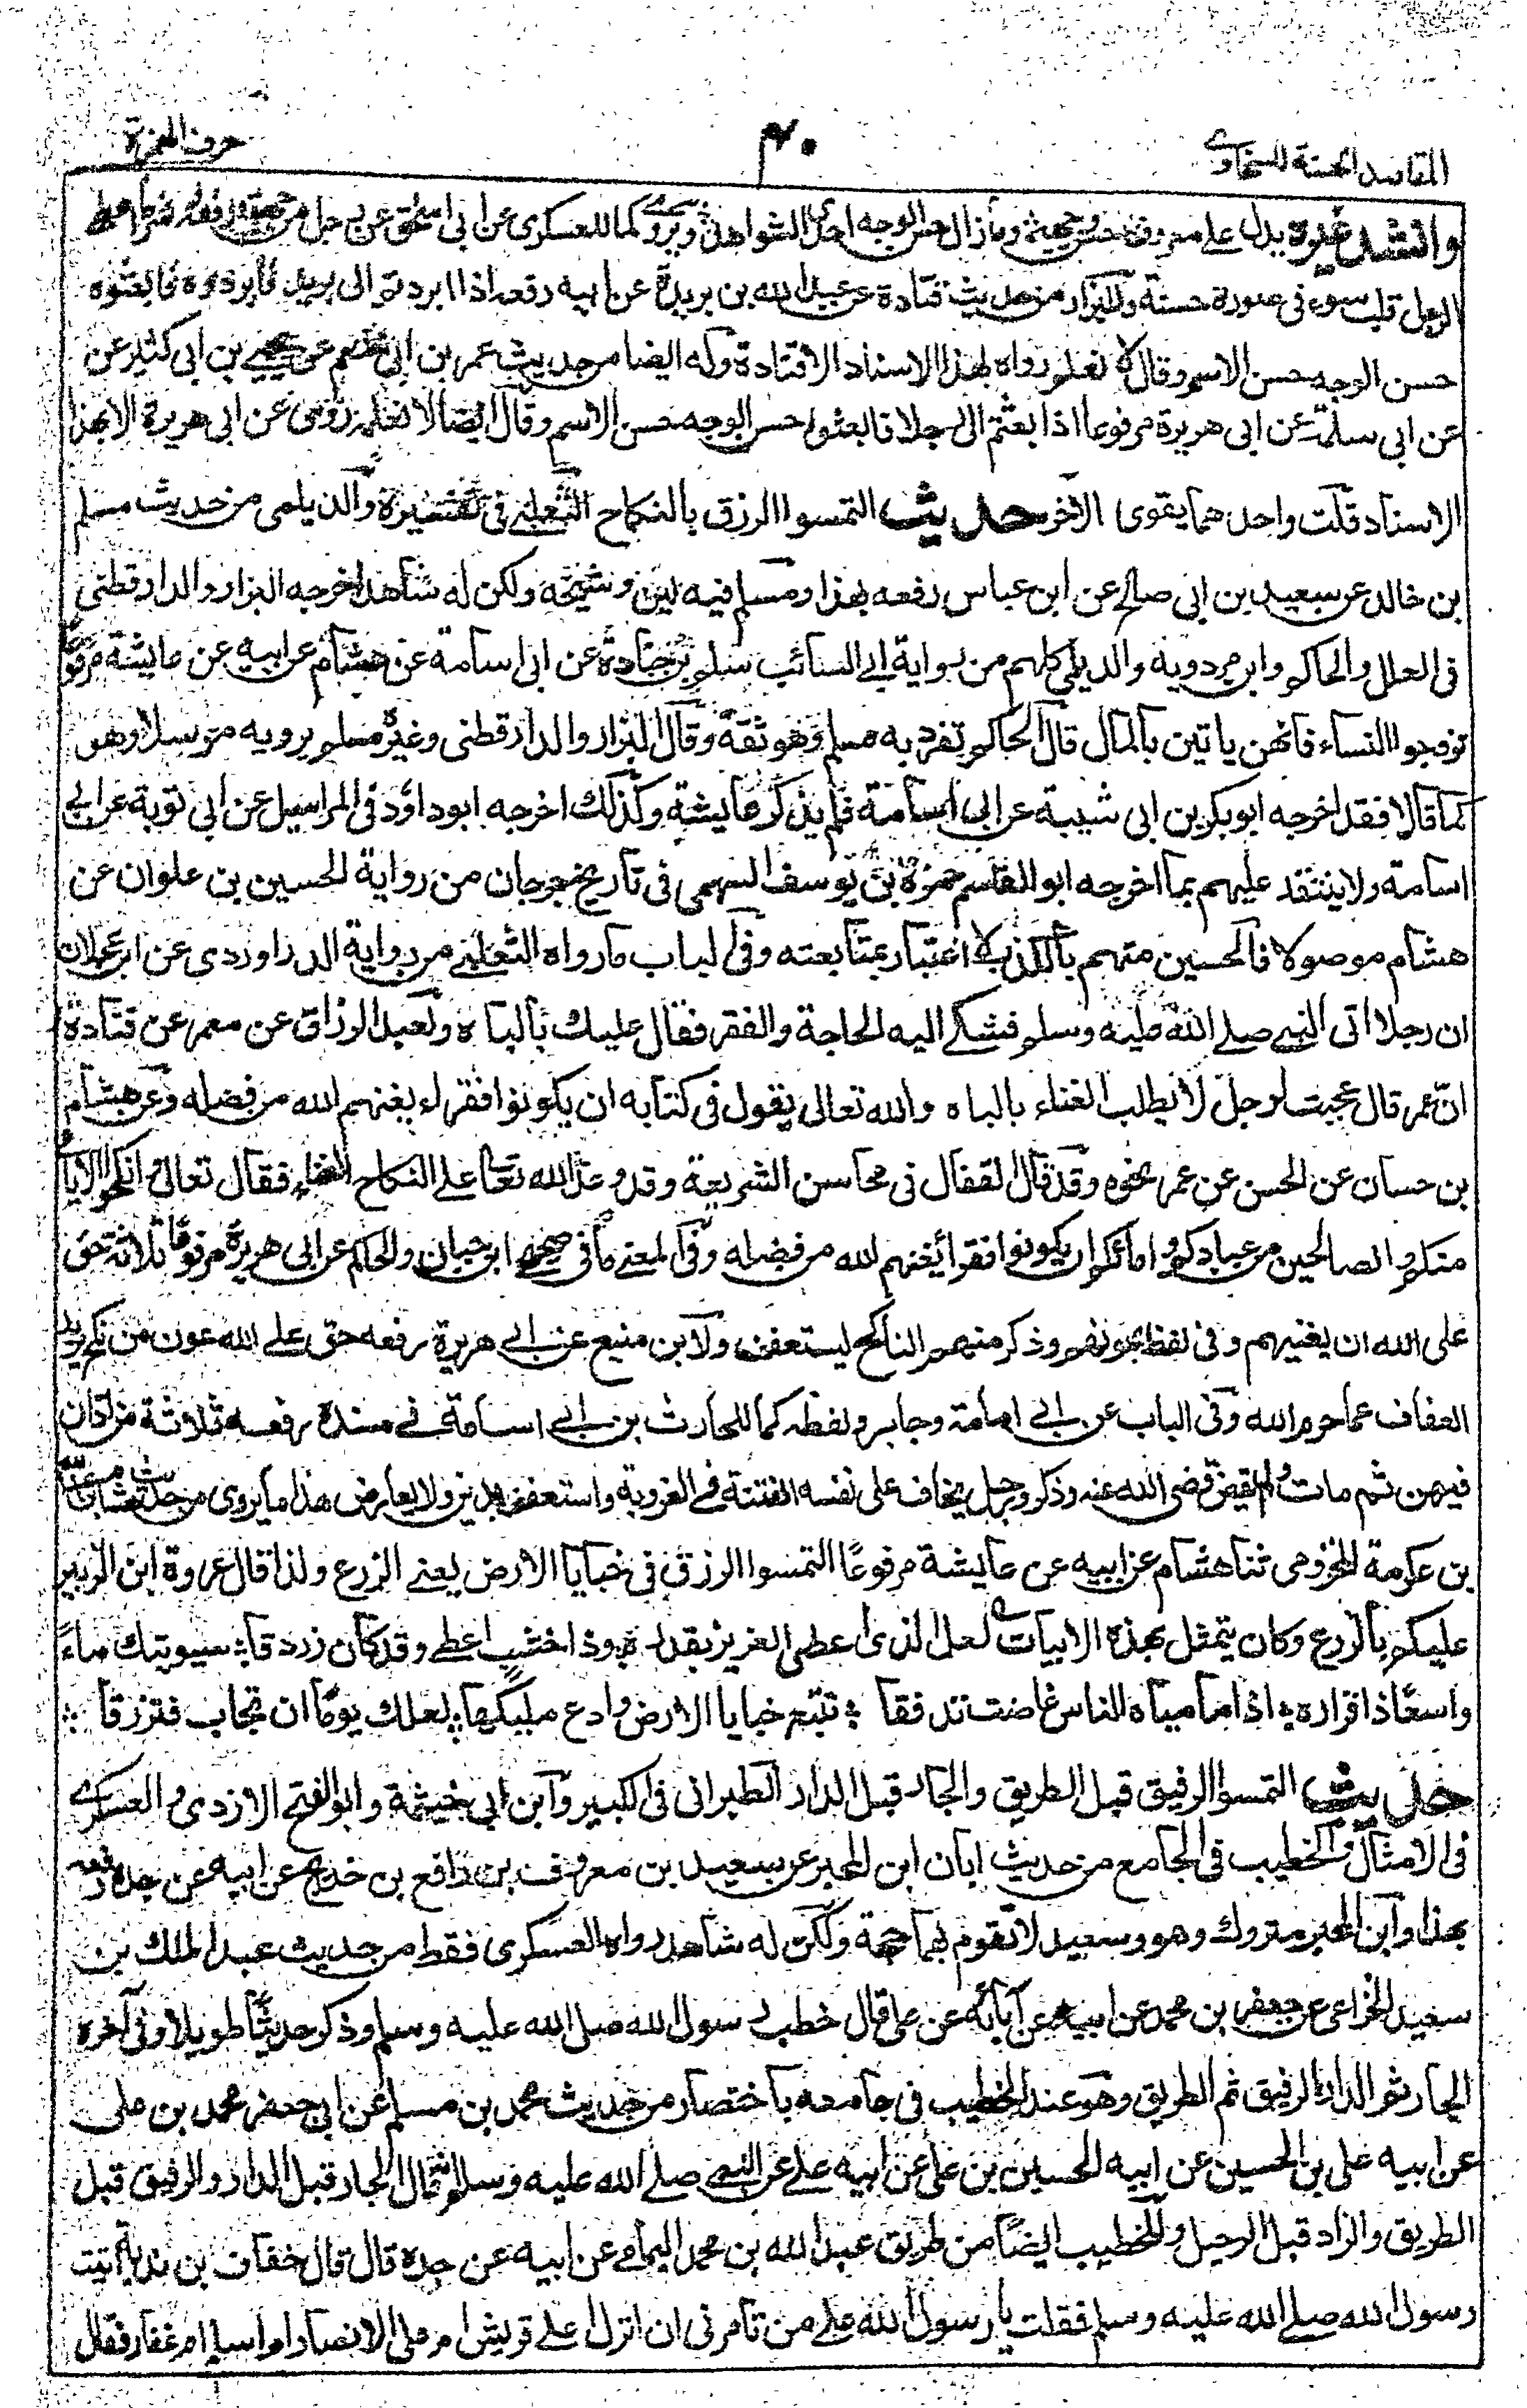 المقاصد الحسنة للسخاوي ۴۰ حرف الهمزة
وانشد غيره يدل على معروفه حسن وجهه وما زال حسن الوجه احدى الشواهد ويروى كما للعسكري عن ابي اسحق عن رجل من جهينة رفعه شر ما اعطي
الرجل قلب سوء في صورة حسنة وللبزار من حديث قتادة عن عبد الله بن بريدة عن ابيه رفعه اذا ابردتم الى بريدا فابردوه فابعثوه
حسن الوجه حسن الاسم وقال لا نعلم رواه بهذا الاسناد الا قتادة وله ايضا من حديث عمر بن ابي خثعم عن يحيى بن ابي كثير عن
عن ابي سلمة عن ابي هريرة مرفوعا اذا بعثتم الى رجلا فابعثوا حسن الوجه حسن الاسم وقال ايضا لا نعلمه روى عن ابي هريرة الا بهذا
الاسناد قلت واحدهما يقوى الاخر حديث التمسوا الرزق بالنكاح الثعلبي في تفسيره والديلمي من حديث مسلم
بن خالد عن سعيد بن ابي صالح عن ابن عباس رفعه بهذا ومسلم فيه لين وشيخه ولكن له شاهد اخرجه البزار والدارقطني
في العلل والحاكم وابن مردويه والديلمي كلهم من رواية ابي السائب سلم بن جنادة عن ابي اسامة عن هشام عن ابيه عن عايشة مرفوعا
تزوجوا النساء فانهن ياتين بالمال قال الحاكم تفرد به مسلم وهو ثقة وقال البزار والدارقطني وغيره مسلم يرويه مرسلا وهو
كما قالا فقد اخرجه ابو بكر بن ابي شيبة عن ابي اسامة فلم يذكر عايشة وكذلك اخرجه ابو داود في المراسيل عن ابي توبة عن ابي
اسامة ولا ينتقد عليهم بما اخرجه ابو القاسم حمزة بن يوسف السهمي في تاريخ جرجان من رواية الحسين بن علوان عن
هشام موصولا فالحسين متهم بالكذب لا اعتبار بمتابعته وفي الباب ما رواه الثعلبي من رواية الدراوردي عن ابن عجلان
ان رجلا اتى النبي صلى الله عليه وسلم فشكى اليه الحاجة والفقر فقال عليك بالباه ولعبد الرزاق عن معمر عن قتادة
ان عمر قال عجبت لرجل لا يطلب الغناء بالباه والله تعالى يقول في كتابه ان يكونوا فقراء يغنهم الله من فضله وعن هشام
بن حسان عن الحسن عن عمر نحوه وقد قال القفال في محاسن الشريعة وقد وعد الله تعا على النكاح الغناء فقال تعالى وانكحوا الايامى
منكم والصالحين من عبادكم وامائكم ان يكونوا فقرأ يغنهم الله من فضله وفي المعنى ما في صحيحي ابن حبان والحاكم عن ابي هريرة مرفوعا ثلاثة حق
على الله ان يغنيهم وفي لفظ عونهم وذكر منهم الناكح ليستعفف ولابن منيع عن ابي هريرة رفعه حق على الله عون من نكح يريد
العفاف عما حرم الله وفي الباب عن ابي امامة وجابر ولفظه كما للحارث بن ابي اسامة في مسنده رفعه ثلاثة من ادان
فيهن ثم مات ولم يقض قضى الله عنه وذكر ورجل يخاف على نفسه الفتنة في العزوبة واستعفف بدين ولا يعارض هذا ما يروى من حديث هشام بن عبد الله
بن عكرمة المخزومي ثنا هشام عن ابيه عن عايشة مرفوعًا التمسوا الرزق في خبايا الارض يعني الزرع ولذا قال عروة ابن الزبير
عليكم بالزرع وكان يتمثل بهذه الابيات لعل الذي اعطى العزيز بقدرة وذا خشب اعطى وقد كان زردقا سيوتيك ماءً
واسعًا ذا قراره اذا ما مياه الناس غاضت تدفقا تتبع خبايا الارض وادع مليكها لعلك يومًا ان تجاب فترزقا
حديث التمسوا الرفيق قبل الطريق والجار قبل الدار الطبراني في الكبير وابن ابي خيثمة وابو الفتح الازدي والعسكري
في الامثال والخطيب في الجامع من حديث ابان ابن المحبر عن سعيد بن معروف بن رافع بن خديج عن ابيه عن جده رفعه
بهذا وابن المحبر متروك وهو وسعيد لا تقوم بهما حجة ولكن له شاهد رواه العسكري فقط من حديث عبد الملك بن
سعيد الخزاعي عن جعفر بن محمد عن ابيه عن آبائه عن علي قال خطب رسول الله صلى الله عليه وسلم وذكر حديثا طويلا وفي آخره
الجار ثم الدار الرفيق ثم الطريق وهو عند الخطيب في جامعه باختصار من حديث محمد بن مسلم عن ابي جعفر محمد بن علي
عن ابيه علي بن الحسين عن ابيه الحسين بن علي عن ابيه علي عن النبي صلى الله عليه وسلم انه قال الجار قبل الدار والرفيق قبل
الطريق والزاد قبل الرحيل وللخطيب ايضًا من طريق عبد الله بن محمد اليمامي عن ابيه عن جده قال قال خفاف بن ندبة اتيت
رسول الله صلى الله عليه وسلم فقلت يا رسول الله على من تامرني ان انزل على قريش ام على الانصار ام اسلم ام غفار فقال